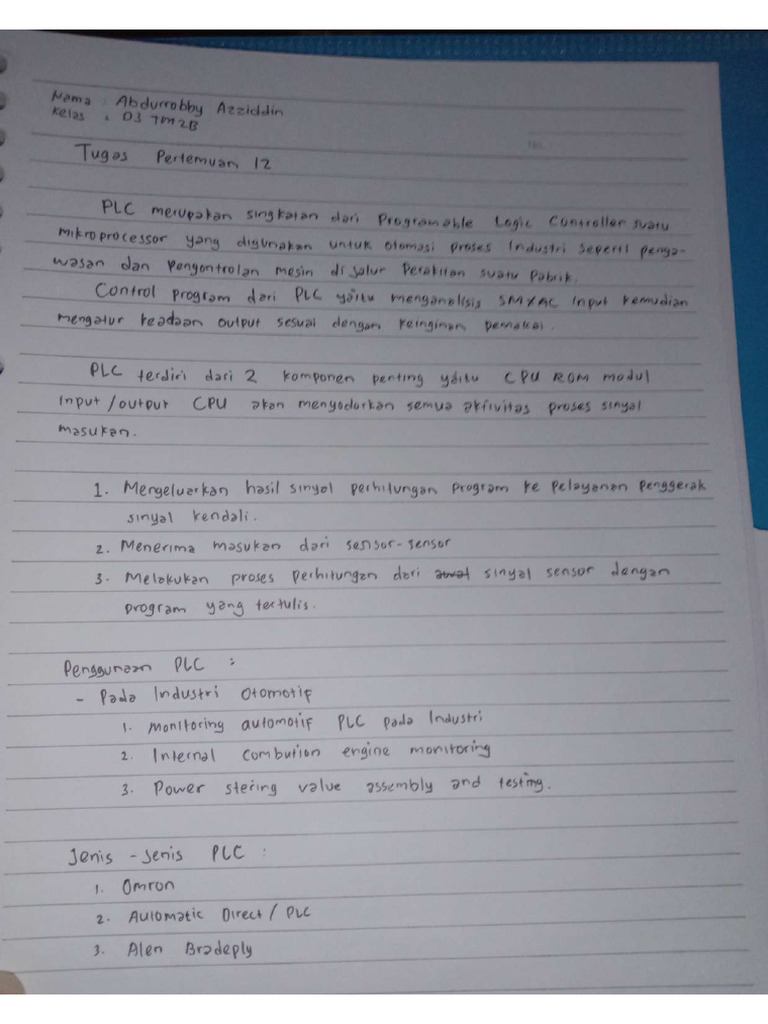 Nama : Abdurrobby Azziddin
Kelas : D3 TM2B
Tugas Pertemuan 12
PLC merupakan singkatan dari Programable Logic Controller suatu
mikroprocessor yang digunakan untuk otomasi proses Industri seperti penga-
wasan dan pengontrolan mesin di jalur Perakitan suatu Pabrik.
Control program dari PLC yaitu menganalisis SMXAC Input kemudian
mengatur keadaan output sesuai dengan keinginan pemakai.
PLC terdiri dari 2 komponen penting yaitu CPU ROM modul
Input/output CPU akan menyodorkan semua aktivitas proses sinyal
masukan.
1. Mengeluarkan hasil sinyal perhitungan program ke pelayanan penggerak
sinyal kendali.
2. Menerima masukan dari sensor-sensor
3. Melakukan proses perhitungan dari sinyal sensor dengan
program yang tertulis.
Penggunaan PLC :
- Pada Industri Otomotif
1. Monitoring automotif PLC pada Industri
2. Internal Combution engine monitoring
3. Power stering value assembly and testing.
Jenis - Jenis PLC :
1. Omron
2. Automatic Direct / PLC
3. Alen Bradeply